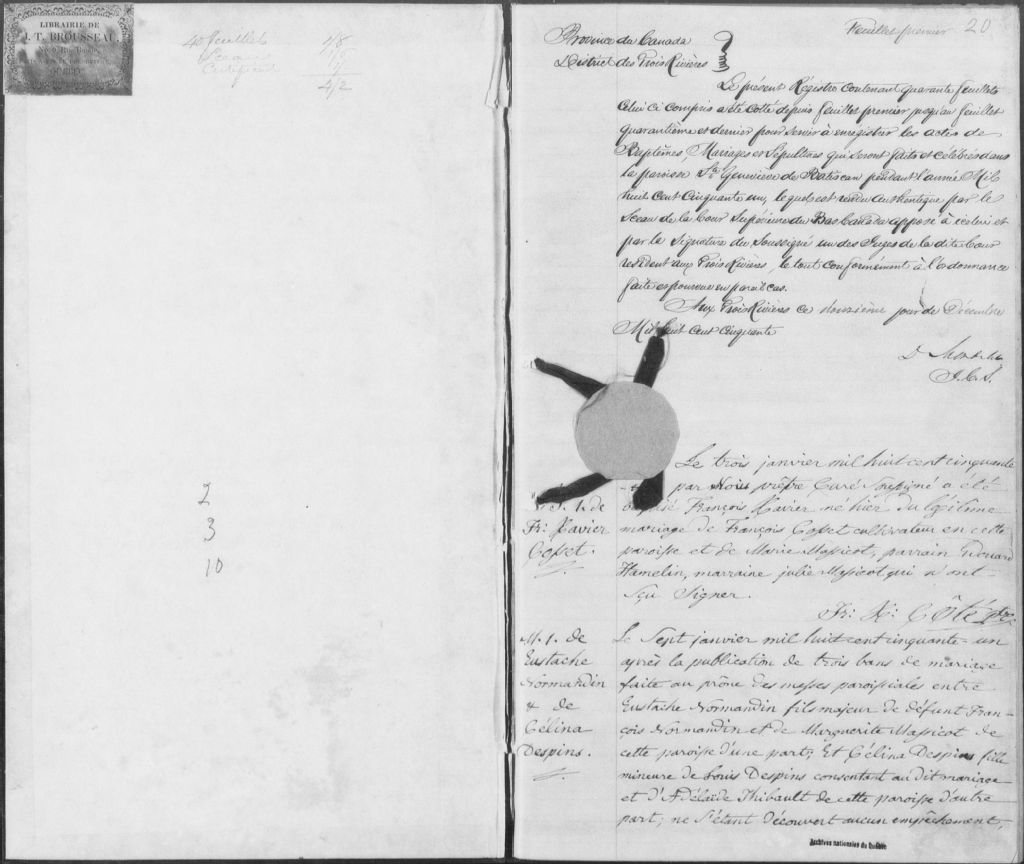 LIBRAIRIE DE
J. T. BROUSSEAU,
QUÉBEC
40 feuillets 1/8
4/2
2
3
10
Feuillet premier 20
Province du Canada
District des Trois Rivières
Le présent Régistre contenant quarante feuillets
celui ci compris a été cotté depuis feuillet premier jusqu'au feuillet
quarantième et dernier pour servir à enregistrer les actes de
Baptêmes Mariages et Sépultures qui seront faits et célébrés dans
la paroisse Ste Geneviève de Batiscan pendant l'année Mil
huit Cent Cinquante un, lequel est rendu authentique par le
Sceau de la Cour Supérieure du Bas Canada apposé à icelui et
par la Signature du Soussigné un des Juges de la dite Cour
resident aux Trois Rivières, le tout conformément à l'ordonnance
faite et pourvue en pareil cas.
Aux Trois Rivières ce douzième jour de Décembre
Mil huit cent cinquante
D. Mondelet
J. C. S.
B. 1. de
Fr: Xavier
Cosset.
Le trois janvier mil huit-cent cinquante
par Nous prêtre Curé Soussigné a été
baptisé François Xavier né hier du légitime
mariage de François Cosset cultivateur en cette
paroisse et de Marie Massicot, parrain Edouard
Hamelin, marraine julie Massicot qui n'ont
sçu Signer.
Fr: X: Côté Ptre.
M. 1. de
Eustache
Normandin
& de
Célina
Despins.
Le Sept janvier mil huit-cent cinquante-un
après la publication de trois bans de mariage
faite au prône des messes paroissiales entre
Eustache Normandin fils majeur de défunt Fran-
çois Normandin et de Marguerite Massicot de
cette paroisse d'une part; Et Célina Despins fille
mineure de Louis Despins consentant au dit mariage
et d'Adélaïde Thibault de cette paroisse d'autre
part; ne s'étant découvert aucun empêchement,
Archives nationales du Québec